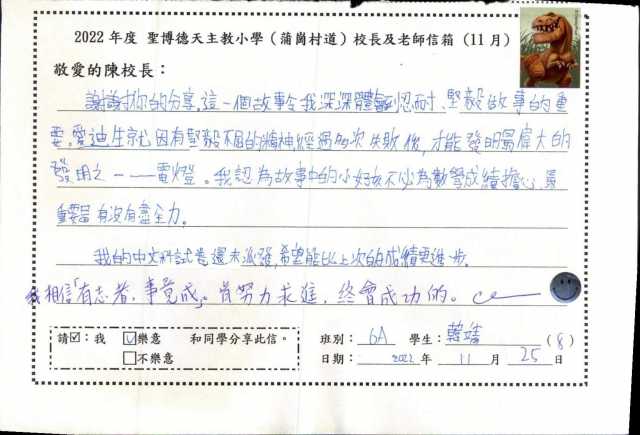 2022 年度 聖博德天主教小學（蒲崗村道）校長及老師信箱（11月）
敬愛的陳校長：
謝謝你的分享。這一個故事令我深深體驗到忍耐、堅毅做事的重
要。愛迪生就因有堅毅不屈的精神，經過多次失敗後，才能發明最偉大的
發明之一——電燈。我認為故事中的小女孩不必為數學成績擔心，最
重要是有沒有盡全力。
我的中文科試卷還未派發，希望能比上次的成績更進步。
我相信「有志者，事竟成」。肯努力求進，終會成功的。
請☑：我 ☑樂意 和同學分享此信。
□不樂意
班別： 6A 學生： 韓靖 (8)
日期： 2022 年 11 月 25 日